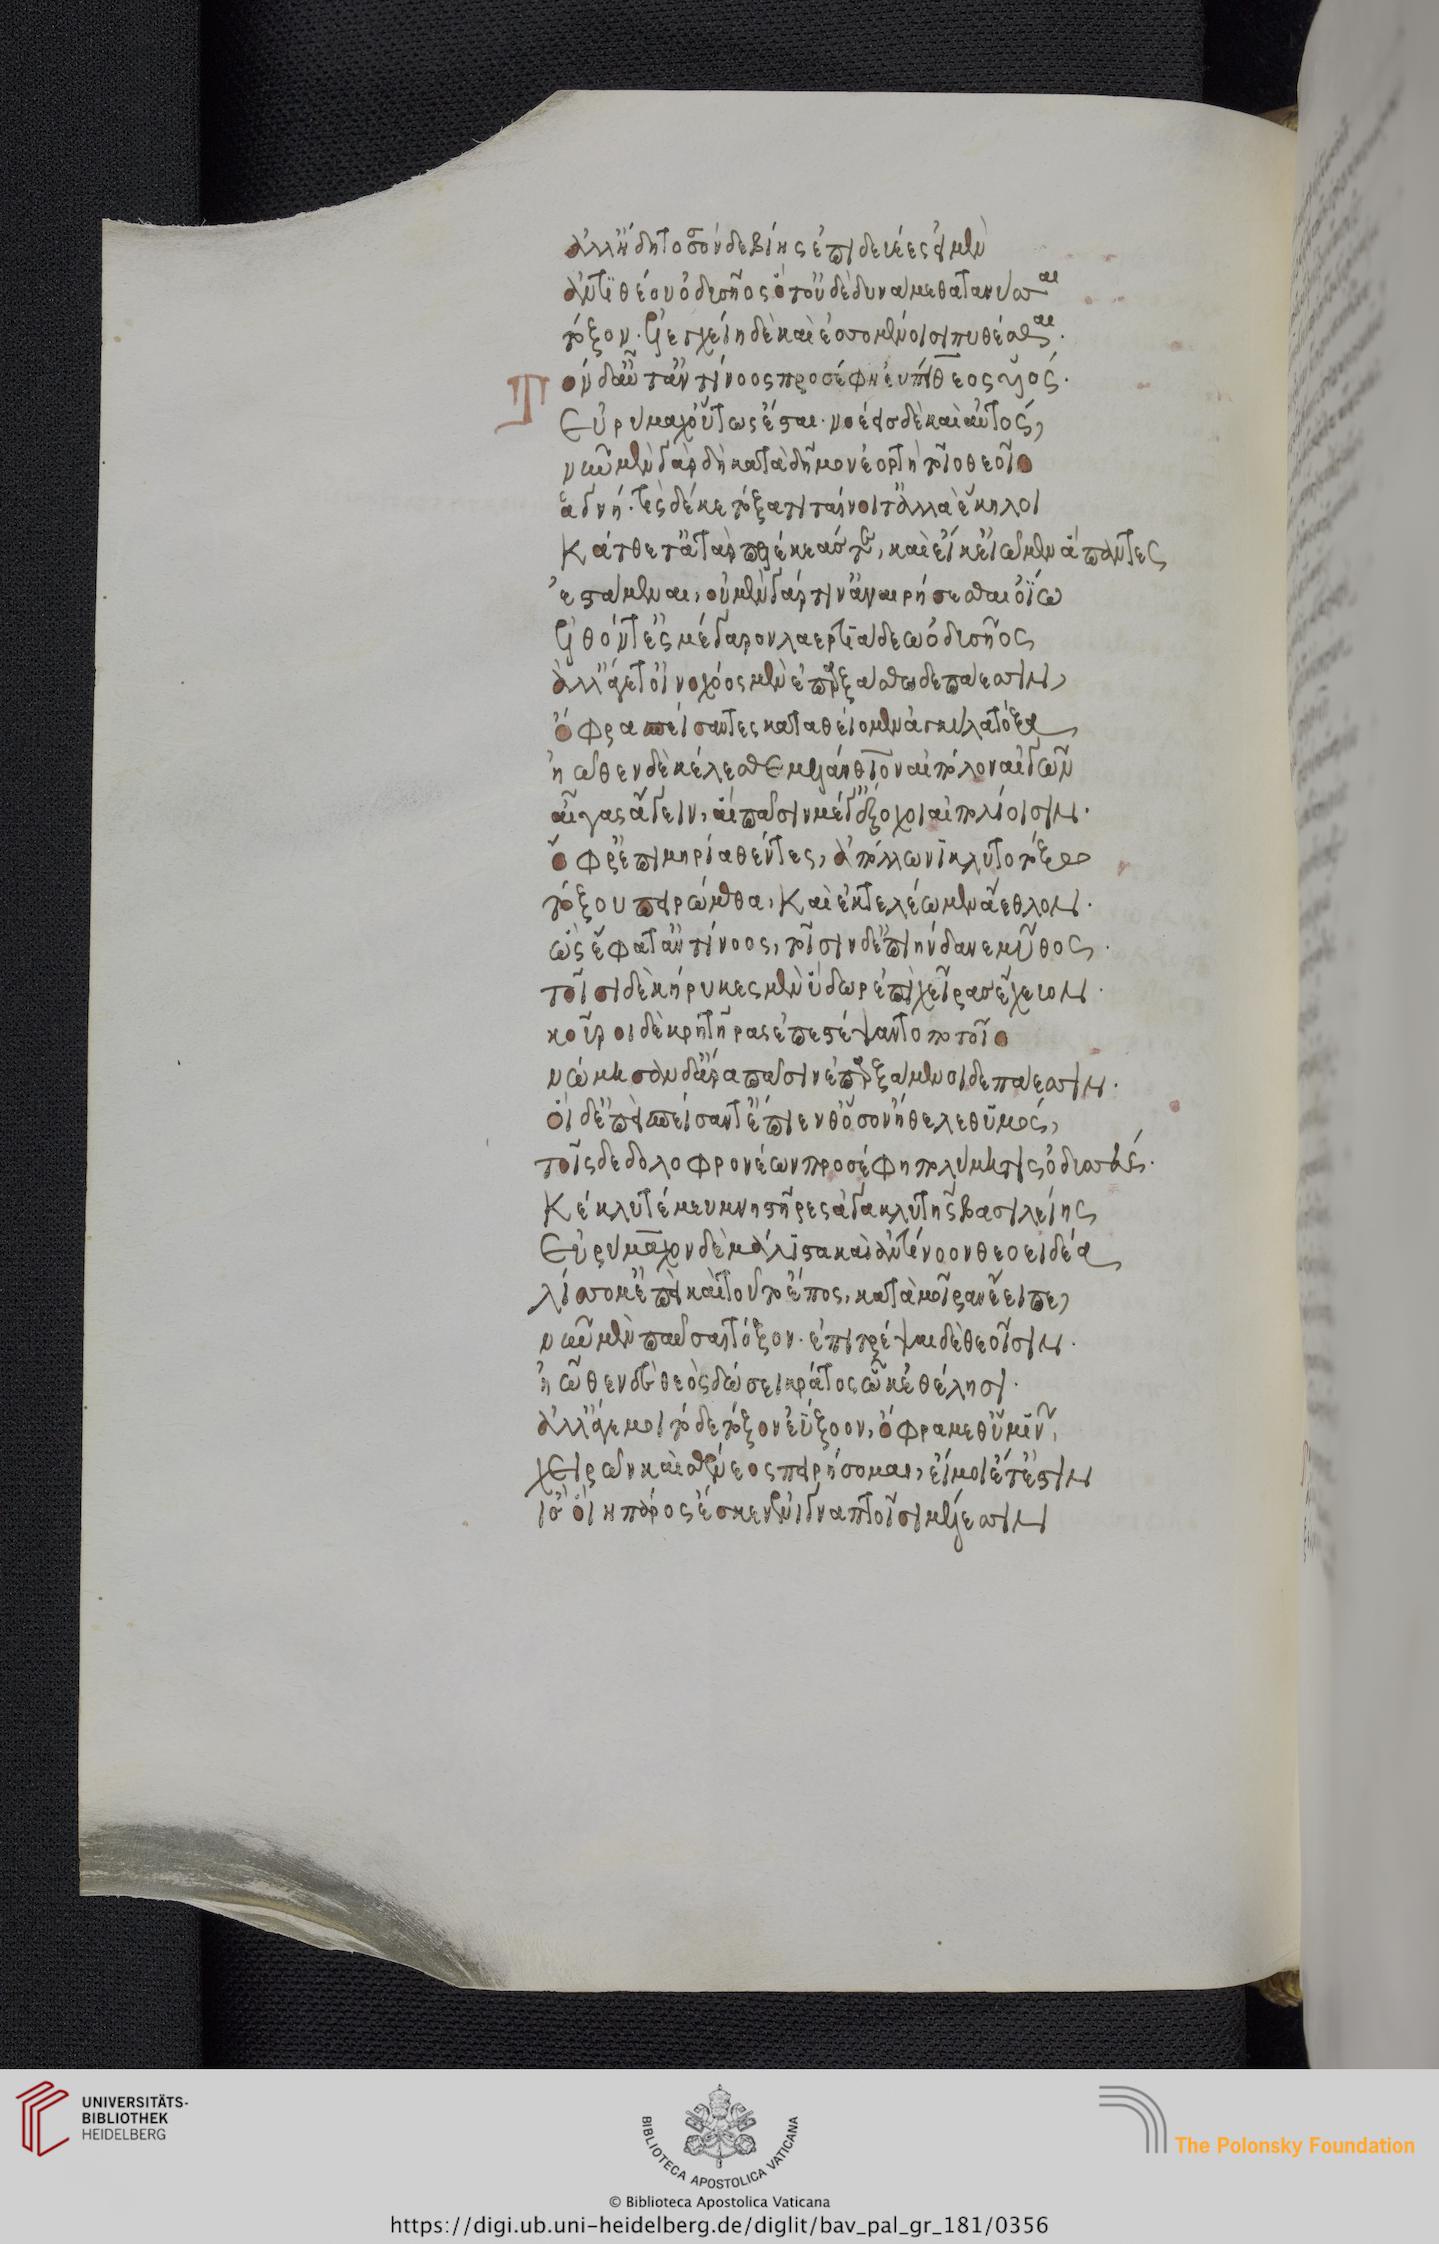 ἀλλ' ἢ δὴ τοσσόνδε βίης ἐπιδευέες εἰμὲν
ἀντιθέου ὀδυσῆος ὅτ' οὐ δὲ δυνάμεθα τανύσσαι
τόξον· ἐλεγχείη δὲ καὶ ἐσσομένοισι πυθέσθαι·
Τὸν δ' αὖτ' ἀντίνοος προσέφη εὐπείθεος υἱός·
Εὐρύμαχ' οὐχ' οὕτως ἔσται· νοέεις δὲ καὶ αὐτός,
νῦν μὲν γὰρ δὴ κατὰ δῆμον ἑορτὴ τοῖο θεοῖο
ἁγνή· τίς δέ κε τόξα τιταίνοιτ' ἀλλὰ ἕκηλοι
κάτθετ' ἀτὰρ πελέκεάς γε, καὶ εἴ κ' εἰῶμεν ἅπαντες
ἑστάμεναι, οὐ μὲν γάρ τιν' ἀναιρήσεσθαι ὀΐω
ἐλθόντ' ἐς μέγαρον λαερτιάδεω ὀδυσῆος
ἀλλ' ἄγετ' οἰνοχόος μὲν ἐπαρξάσθω δεπάεσσιν,
ὄφρα σπείσαντες καταθείομεν ἀγκύλα τόξα
ἠῶθεν δὲ κέλεσθε μελάνθιον αἰπόλον αἰγῶν
αἶγας ἄγειν, αἳ πᾶσιν μέγ' ἔξοχοι αἰπολίοισιν·
ὄφρ' ἐπὶ μηρία θέντες, ἀπόλλωνι κλυτοτόξω
τόξου πειρώμεσθα, καὶ ἐκτελέωμεν ἄεθλον·
ὣς ἔφατ' ἀντίνοος, τοῖσιν δ' ἐπιήνδανε μῦθος·
τοῖσι δὲ κήρυκες μὲν ὕδωρ ἐπὶ χεῖρας ἔχευον·
κοῦροι δὲ κρητῆρας ἐπεστέψαντο ποτοῖο
νώμησαν δ' ἄρα πᾶσιν ἐπαρξάμενοι δεπάεσσιν·
οἱ δ' ἐπεὶ σπεῖσαν τ' ἔπιεν θ' ὅσον ἤθελε θυμός,
τοῖς δὲ δολοφρονέων προσέφη πολύμητις ὀδυσσεύς·
Κέκλυτέ μευ μνηστῆρες ἀγακλυτῆς βασιλείης
Εὐρύμαχον δὲ μάλιστα καὶ ἀντίνοον θεοειδέα
λίσσομ' ἐπεὶ καὶ τοῦτο ἔπος, κατὰ μοῖραν ἔειπε,
νῦν μὲν παῦσαι τόξον· ἐπιτρέψαι δὲ θεοῖσιν·
ἠῶθεν δὲ θεὸς δώσει κράτος ὧ κ' ἐθέλησι·
ἀλλ' ἄγε μοι τόδε τόξον ἐΰξοον, ὄφρα μεθ' ὑμῖν,
χειρῶν καὶ σθένεος πειρήσομαι, εἴ μοι ἔτ' ἐστὶν
ἲς οἵη πάρος ἔσκεν ἐνὶ γναμπτοῖσι μέλεσσιν
UNIVERSITÄTS-
BIBLIOTHEK
HEIDELBERG
BIBLIOTECA APOSTOLICA VATICANA
The Polonsky Foundation
© Biblioteca Apostolica Vaticana
https://digi.ub.uni-heidelberg.de/diglit/bav_pal_gr_181/0356